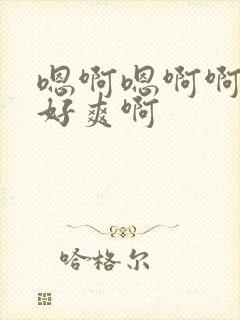 嗯啊嗯啊啊
好爽啊
哈格尔